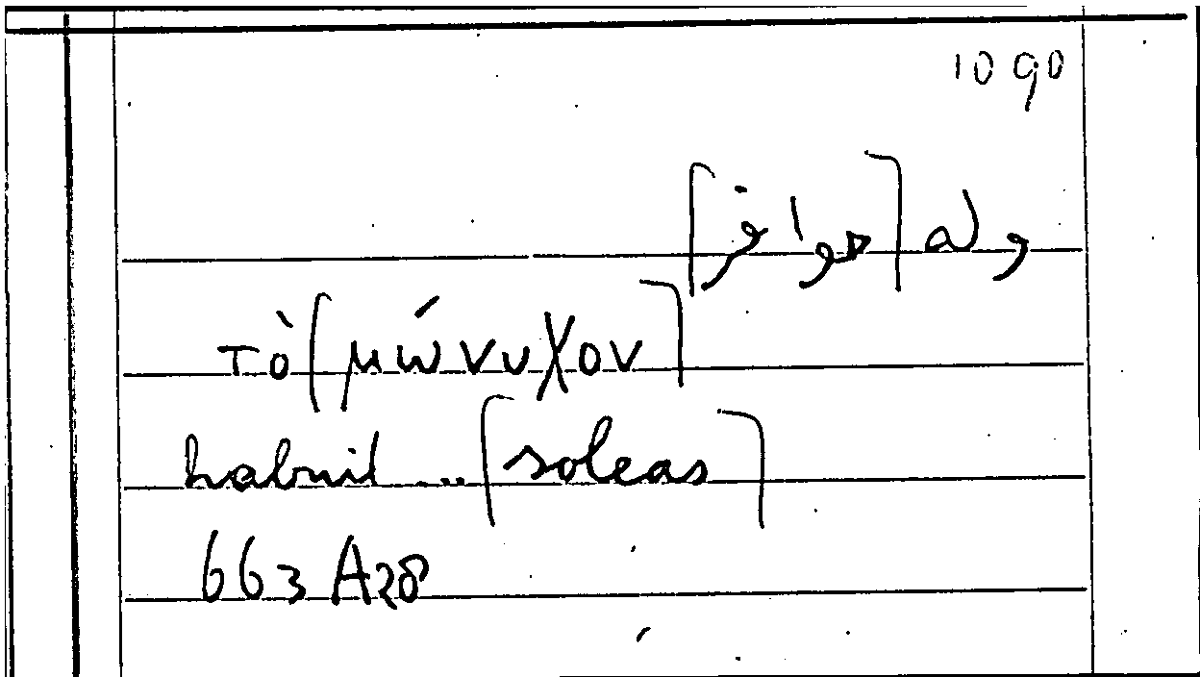 1090
وله [حوافر]
τὸ [μώνυχον]
habuit ... [soleas]
663 A28